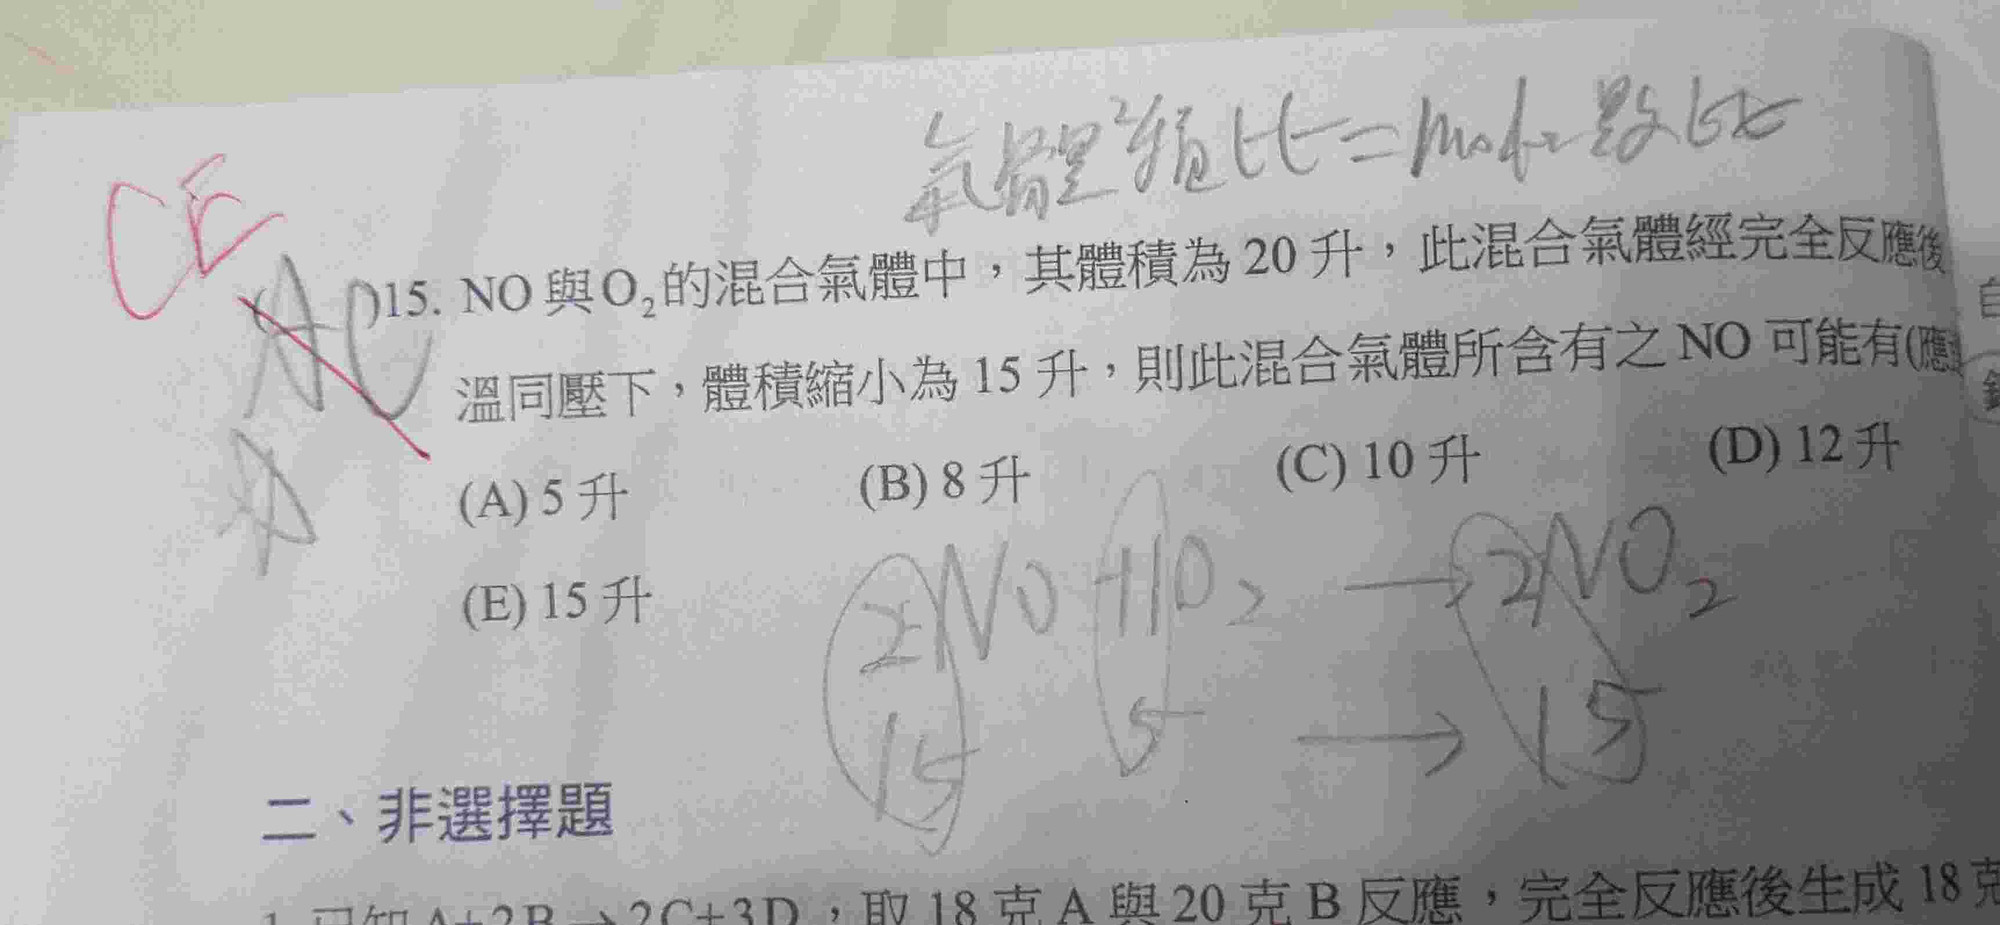 氣體體積比=mole數比
CE
AC
)15. NO與O₂的混合氣體中，其體積為20升，此混合氣體經完全反應後
溫同壓下，體積縮小為15升，則此混合氣體所含有之NO 可能有(應
(A) 5升 (B) 8升 (C) 10升 (D) 12升
(E) 15升
2NO+1O₂→2NO₂
15 5 → 15
二、非選擇題
1. 已知A+2B→2C+3D，取18克A與20克B反應，完全反應後生成18克